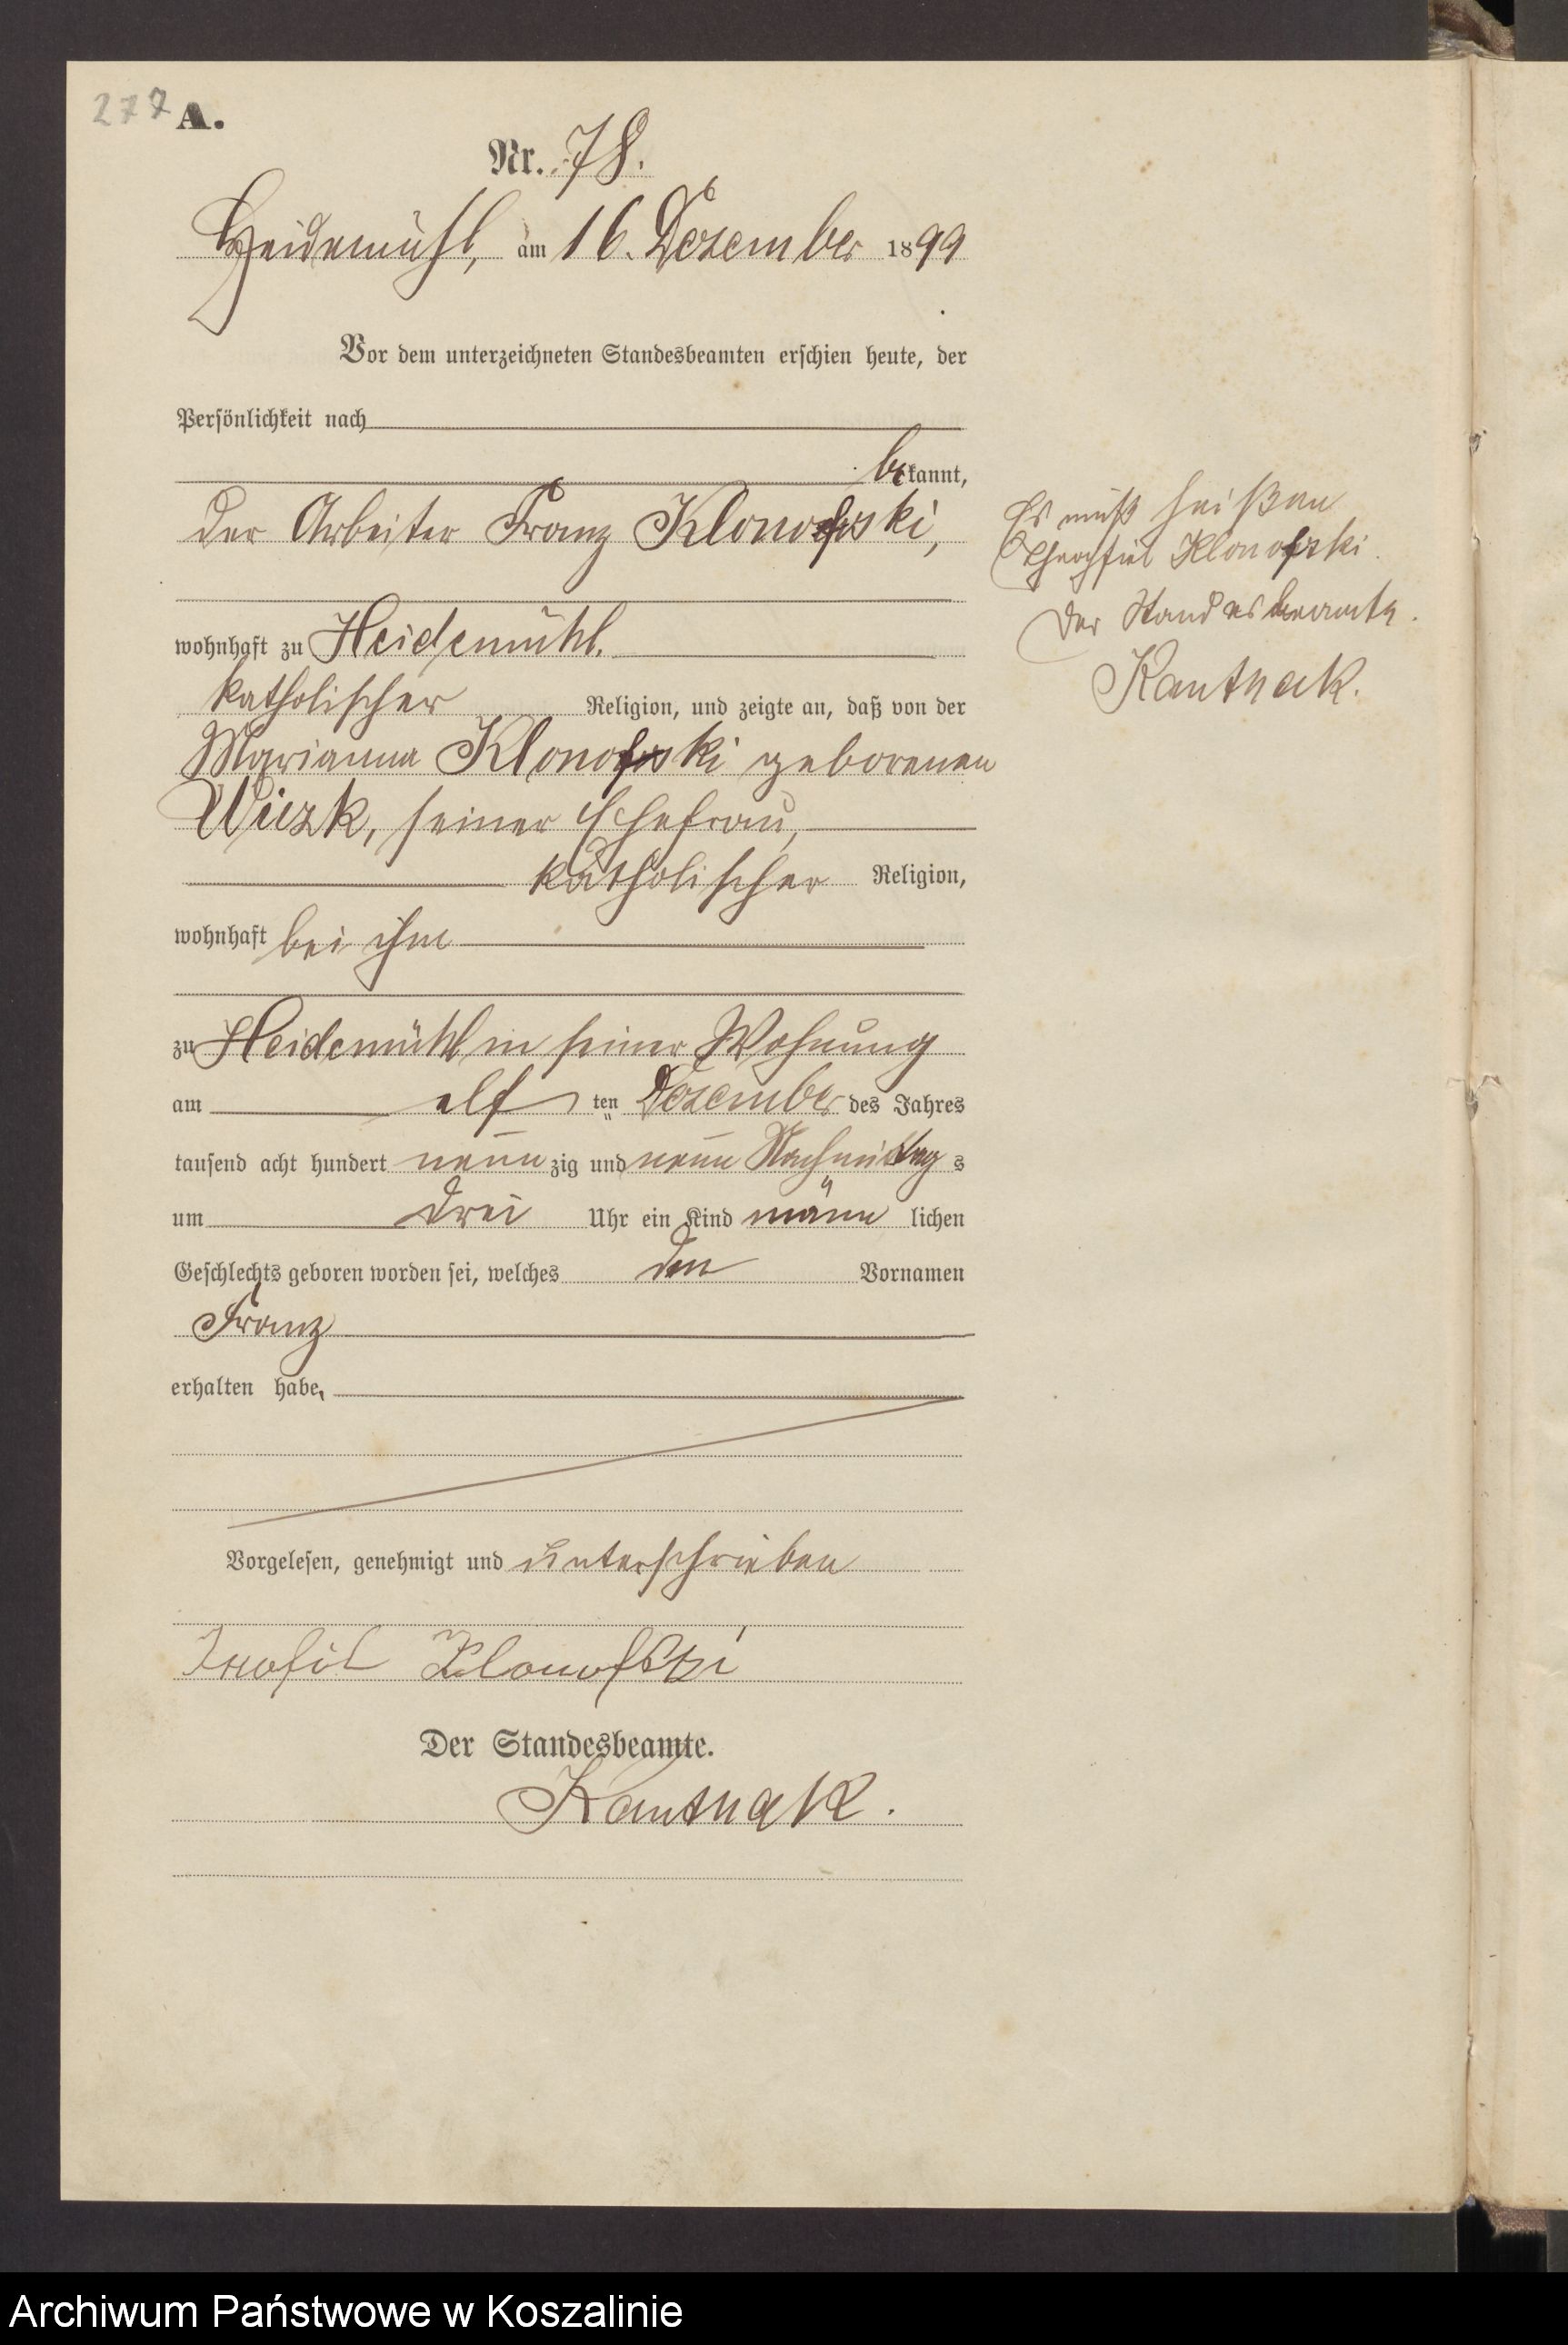 277 A.
Nr. 78.
Heidemühl, am 16. Dezember 1899
Vor dem unterzeichneten Standesbeamten erschien heute, der
Persönlichkeit nach
bekannt,
der Arbeiter Franz Klonofski,
wohnhaft zu Heidemühl.
katholischer Religion, und zeigte an, daß von der
Marianna Klonofski geborenen
Wiczk, seiner Ehefrau,
katholischer Religion,
wohnhaft bei ihm
zu Heidemühl in seiner Wohnung
am elf ten Dezember des Jahres
tausend acht hundert neun zig und neun Nachmittag s
um drei Uhr ein Kind männ lichen
Geschlechts geboren worden sei, welches den Vornamen
Franz
erhalten habe.
Vorgelesen, genehmigt und unterschrieben
Klonofski
Der Standesbeamte.
Kantnak.
Es muß heißen
Theophiel Klonofski.
Der Standesbeamte.
Kantnak.
Archiwum Państwowe w Koszalinie